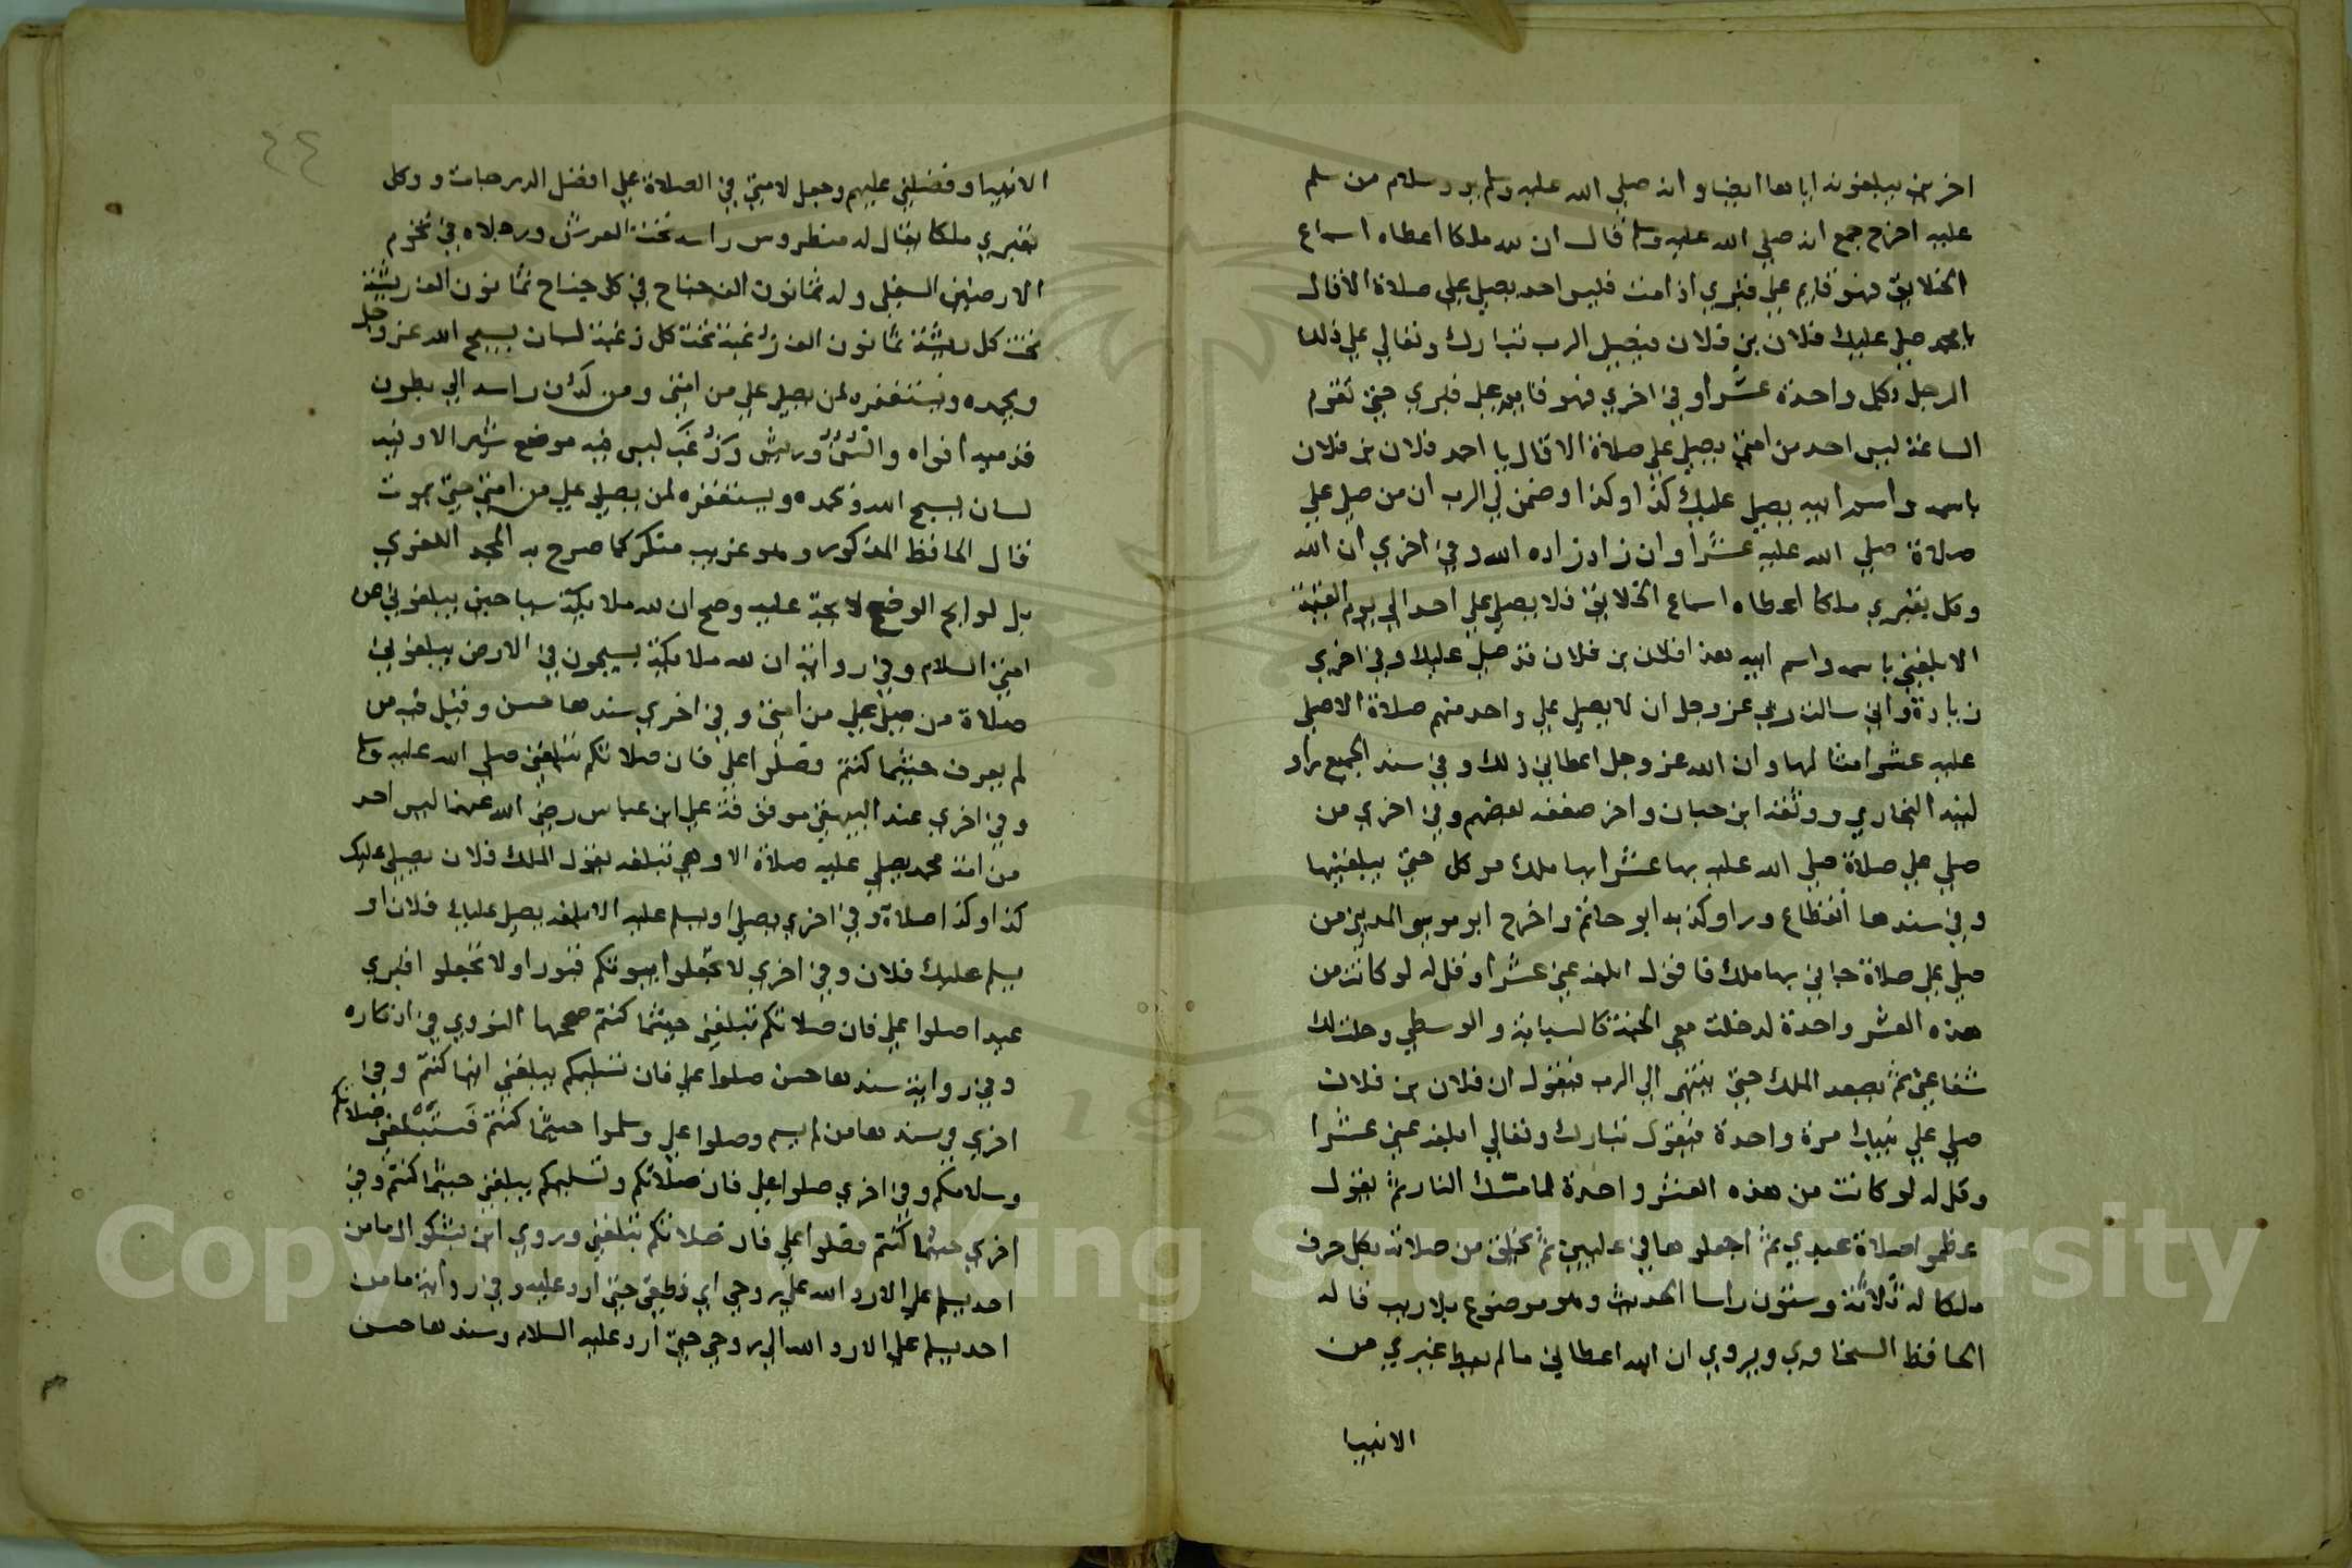 اخرين يبلغونه اياها ايضا وانه صلي الله عليه وسلم يرد سلام من سلم
عليه اخرج جمع انه صلي الله عليه وسلم قال ان لله ملكا اعطاه اسماع
الخلايق فهو قايم علي قبري اذا مت فليس احد يصلي علي صلاة الا قال
يا محمد صلي عليك فلان بن فلان فيصلي الرب تبارك وتعالي علي ذلك
الرجل بكل واحدة عشرا وفي اخري فهو قايم علي قبري حتي تقوم
الساعة ليس احد من امتي يصلي علي صلاة الا قال يا احمد فلان بن فلان
باسمه واسم ابيه يصلي عليك كذا وكذا وضمن لي الرب ان من صلي علي
صلاة صلي الله عليه عشرا وان زاد زاده الله وفي اخري ان الله
وكل بقبري ملكا اعطاه اسماع الخلايق فلا يصلي علي احد الي يوم القيمة
الا بلغني باسمه واسم ابيه هذا فلان بن فلان قد صلي عليك وفي اخري
زيادة واني سالت ربي عز وجل ان لا يصلي علي واحد منهم صلاة الا صلي
عليه عشر امثالها وان الله عز وجل اعطاني ذلك وفي سند الجميع راو
لينه البخاري ووثقه ابن حبان واخر ضعفه بعضهم وفي اخري من
صلي علي صلاة صلي الله عليه بها عشرا بها ملك موكل حتي يبلغنيها
وفي سندها انقطاع وراو كذبه ابو حاتم واخرج ابو موسي المديني من
صلي علي صلاة جاني بها ملك فاقول ابلغه عني عشرا وقل له لو كانت من
هذه العشر واحدة لدخلت معي الجنة كالسبابة والوسطي وحلت لك
شفاعتي ثم يصعد الملك حتي ينتهي الي الرب فيقول ان فلان بن فلان
صلي علي نبيك مرة واحدة فيقول تبارك وتعالي ابلغه عني عشرا
وقل له لو كانت من هذه العشر واحدة لما مستك النار ثم يقول
عظموا صلاة عبدي ثم اجعلوها في عليين ثم يخلق من صلاته بكل حرف
ملكا له ثلاثة وستون راسا الحديث وهو موضوع بلا ريب قاله
الحافظ السخاوي ويروي ان الله اعطاني ما لم يعط غيري من
الانبيا
٤٤
الانبيا وفضلني عليهم وجعل لامتي في الصلاة علي افضل الدرجات ووكل
بقبري ملكا يقال له منطروس راسه تحت العرش ورجلاه في تخوم
الارضين السفلي وله ثمانون الف جناح في كل جناح ثمانون الف ريشة
تحت كل ريشة ثمانون الف زغبة تحت كل زغبة لسان يسبح الله عز وجل
ويحمده ويستغفره لمن يصلي علي من امتي ومن لدن راسه الي بطون
قدميه افواه والسن وريش وزغب ليس فيه موضع شبر الا وفيه
لسان يسبح الله ويحمده ويستغفره لمن يصلي علي من امتي حتي يموت
قال الحافظ المذكور وهو غريب منكر كما صرح به المجد اللغوي
بل لوايح الوضع لايحة عليه وصح ان لله ملايكة سياحين يبلغوني من
امتي السلام وفي رواية ان لله ملايكة يسيحون في الارض يبلغوني
صلاة من صلي علي من امتي وفي اخري سندها حسن وقيل فيه من
لم يعرف حيثما كنتم فصلوا علي فان صلاتكم تبلغني صلي الله عليه وسلم
وفي اخري عند البيهقي موقوفة علي ابن عباس رضي الله عنهما ليس احد
من امة محمد يصلي عليه صلاة الا وهي تبلغه يقول الملك فلان يصلي عليك
كذا وكذا صلاة وفي اخري يصلي او يسلم عليه الا بلغه يصلي عليك فلان او
يسلم عليك فلان وفي اخري لا تجعلوا بيوتكم قبورا ولا تجعلوا قبري
عيدا صلوا علي فان صلاتكم تبلغني حيثما كنتم صححها النووي في اذكاره
وفي رواية سندها حسن صلوا علي فان تسليمكم يبلغني اينما كنتم وفي
اخري في سندها من لم يسم وصلوا علي وسلموا حيثما كنتم فستبلغني صلاتكم
وسلامكم وفي اخري صلوا علي فان صلاتكم وتسليمكم يبلغني حيثما كنتم وفي
اخري حيثما كنتم فصلوا علي فان صلاتكم تبلغني وروي ابن بشكوال ما من
احد يسلم علي الا رد الله علي روحي اي نطقي حتي ارد عليه وفي رواية ما من
احد يسلم علي الا رد الله الي روحي حتي ارد عليه السلام وسندها حسن
Copyright © King Saud University
1957